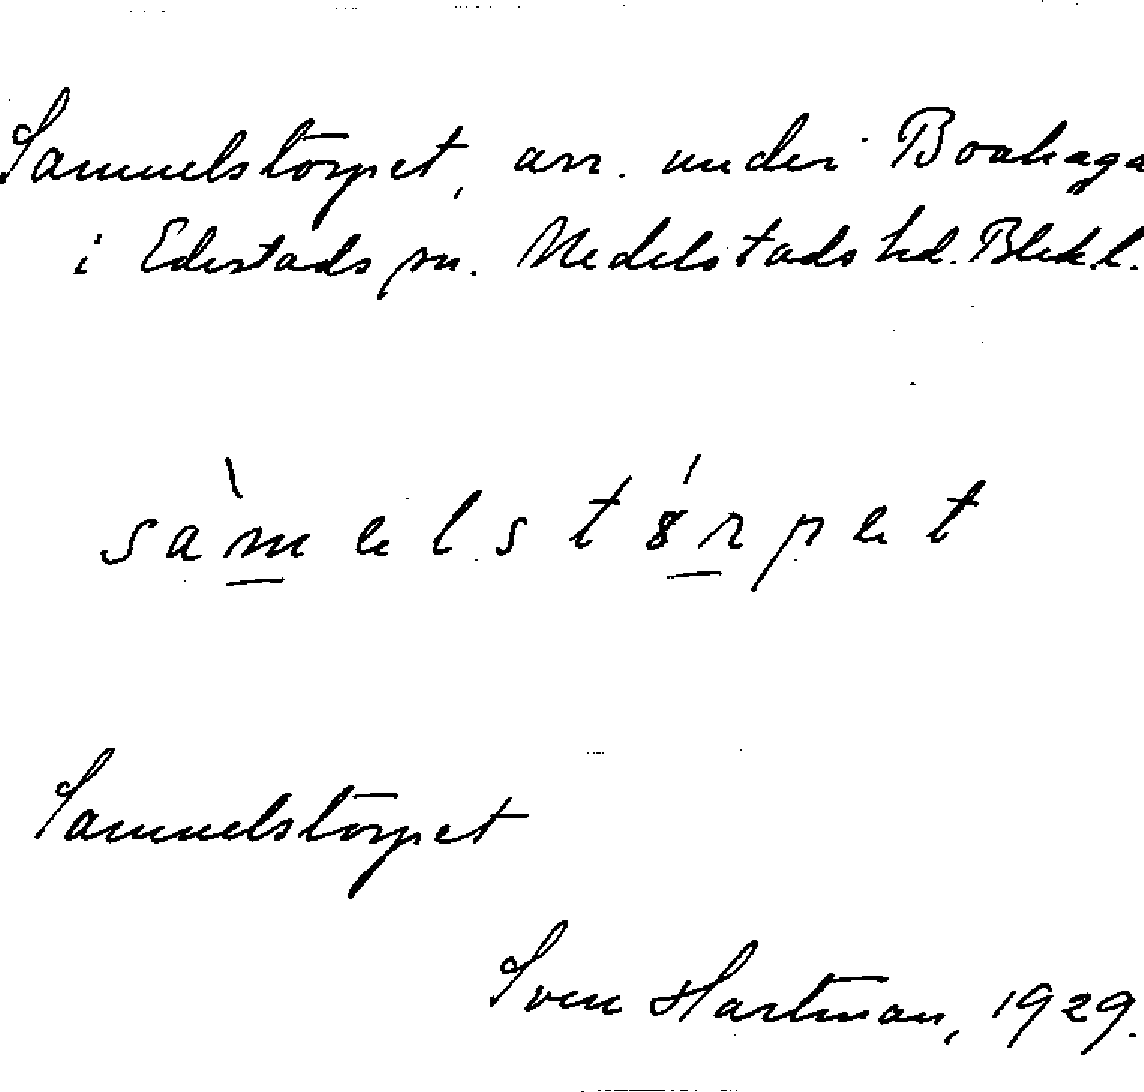 Samuelstorpet, arr. under Boahaga
i Edestads sn. Medelstads hd. Blek.l.
sàmelstórpet
Samuelstorpet
Sven Hartman, 1929.